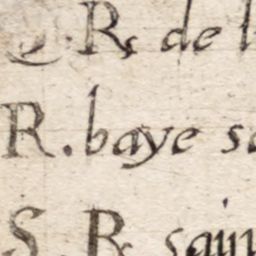 R de l
R. baye sa
S. R sain